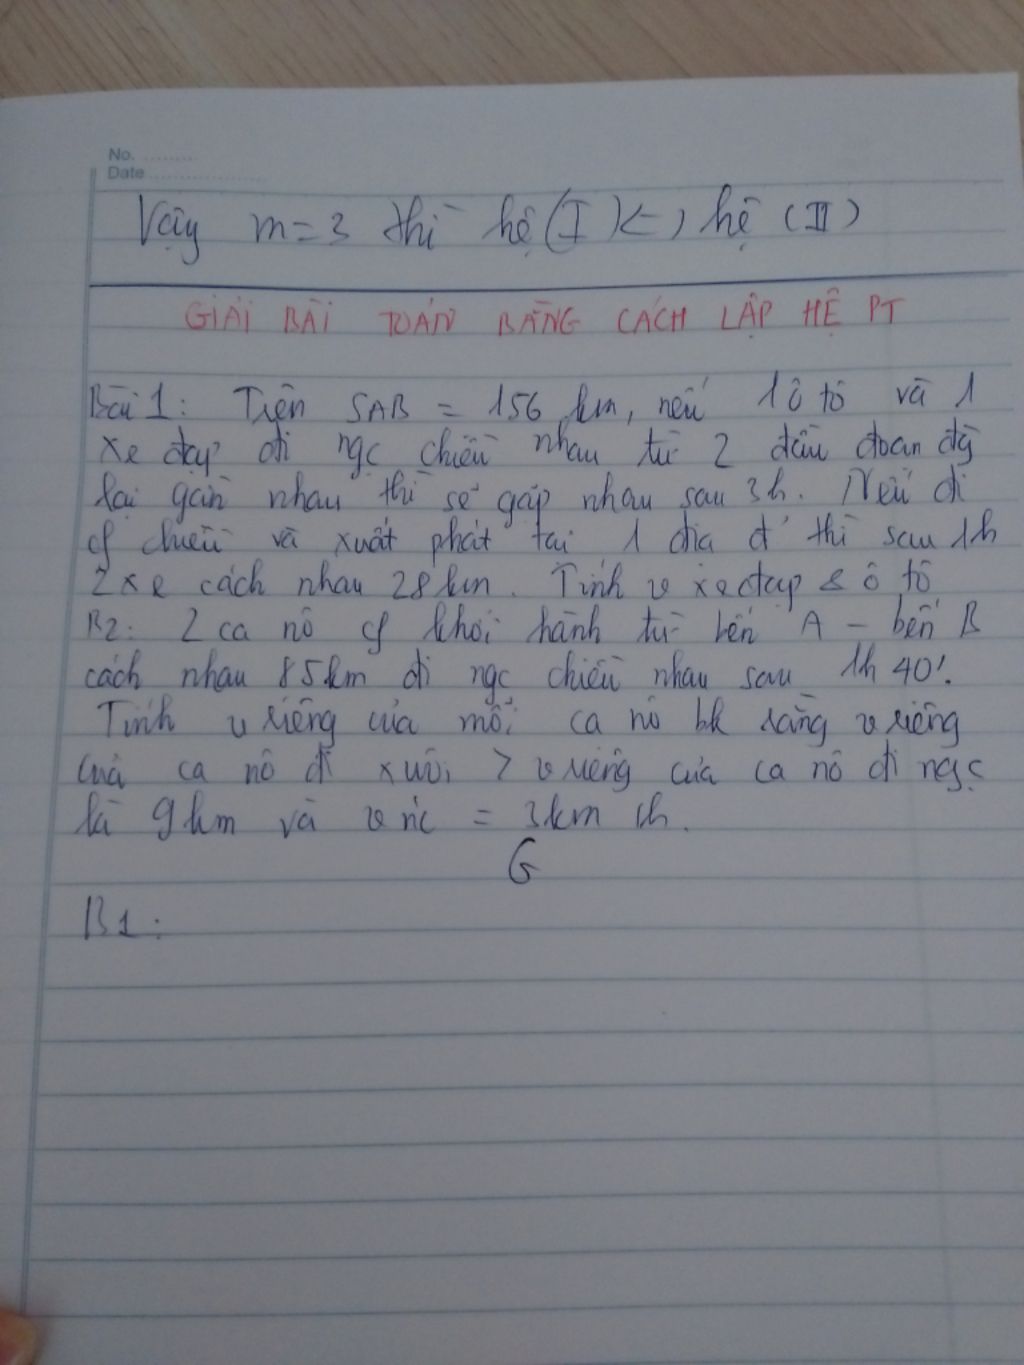 No. ..........
Date ....................
Vậy m = 3 thì hệ (I) <=> hệ (II)
GIẢI BÀI TOÁN BẰNG CÁCH LẬP HỆ PT
Bài 1: Trên SAB = 156 km, nếu 1 ô tô và 1
xe đạp đi ngc chiều nhau từ 2 đầu đoạn đg
lại gần nhau thì sẽ gặp nhau sau 3h. Nếu đi
cf chiều và xuất phát tại 1 địa đ' thì sau 1h
2 xe cách nhau 28km. Tính v xe đạp & ô tô
B2: 2 ca nô cf khởi hành từ bến A - bến B
cách nhau 85km đi ngc chiều nhau sau 1h 40'.
Tính v riêng của mỗi ca nô bk rằng v riêng
của ca nô đi xuôi > v riêng của ca nô đi ngc
là 9km và v nc = 3km /h.
G
B1: